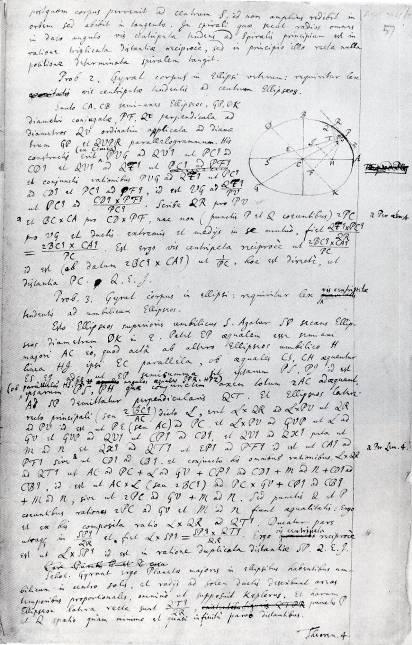 postquam corpus pervenit ad centrum S, id non amplius redibit in
orbem sed abibit in tangente. In spirali quæ secat radios omnes
in dato angulo vis centripeta tendens ad spiralis principium est in
ratione triplicata distantiæ reciprocè, sed in principio illo recta nulla
positione determinata spiralem tangit.
Prob 2. Gyrat corpus in Ellipsi veterum: requiritur lex
vis centripetæ tendentis ad centrum Ellipseos.
Sunto CA, CB semi-axes Ellipseos, GP, DK
diametri conjugatæ, PF, Qt perpendicula ad
diametros QV ordinatim applicata ad diame-
trum GP et QVPR parallelogrammum. His
constructis erit PVG ad QVq ut PCq ad
CDq et QVq ad Qtq ut PCq ad PFq
et conjunctis rationibus PVG ad Qtq ut PCq
ad CDq et PCq ad PFq, id est VG ad Qtq/PV
ut PCq ad CDq × PFq / PCq. Scribe QR pro PV
et BC × CA pro CD × PF, nec non (punctis P et Q coeuntibus) 2PC
pro VG et ductis extremis et medijs in se mutuo, fiet Qtq × PCq / QR
= 2BCq × CAq / PC. Est ergo vis centripeta reciprocè ut 2BCq × CAq / PC
id est (ob datum 2BCq × CAq) ut 1/PC, hoc est directè, ut
distantia PC. Q. E. I.
Prob. 3. Gyrat corpus in ellipsi: requiritur lex vis centripetæ
tendentis ad umbilicum Ellipseos.
Esto Ellipseos superioris umbilicus S. Agatur SP secans Ellip-
seos diametrum DK in E. Patet EP æqualem esse semiaxi
majori AC eo, quod actâ ab altero Ellipseos umbilico H
linea HI ipsi EC parallela, ob æquales CS, CH æquentur
ES, EI, adeo ut EP semisumma sit ipsarum PS, PI id est
ipsarum PS, PH quæ conjunctim axem totum 2AC adæquant.
Ad SP demittatur perpendicularis QT. Et Ellipseos latere
recto principali seu 2BCq/AC dicto L, erit L×QR ad L×PV ut QR
ad PV id est ut PE (seu AC) ad PC. et L×PV ad GVP ut L ad
GV et GVP ad QVq ut CPq ad CDq et QVq ad QXq puta ut
M ad N et QXq ad QTq ut EPq ad PFq id est ut CAq ad
PFq sive ut CDq ad CBq. et conjunctis his omnibus rationibus L×QR
ad QTq ut AC ad PC + L ad GV + CPq ad CDq + M ad N + CDq ad
CBq, id est ut AC×L (seu 2BCq) ad PC×GV + CPq ad CBq
+ M ad N, sive ut 2PC ad GV + M ad N. Sed punctis Q et P
coeuntibus rationes 2PC ad GV et M ad N fiunt æqualitatis: Ergo
et ex his composita ratio L×QR ad QTq. Ducatur pars
utraq in SPq/QR et fiet L×SPq = SPq × QTq / QR. Ergo vis centripeta reciprocè
est ut L×SPq id est in ratione duplicata distantiæ SP. Q. E. I.
Schol. Gyrant ergo Planetæ majores in ellipsibus habentibus um-
bilicum in centro solis, et radijs ad solem ductis describunt areas
temporibus proportionales, omnino ut supposuit Keplerus. Et harum
Ellipseon latera recta sunt QTq/QR, punctis P
et Q spatio quam minimo et quasi infinitè parvo distantibus.
Theorem. 4.